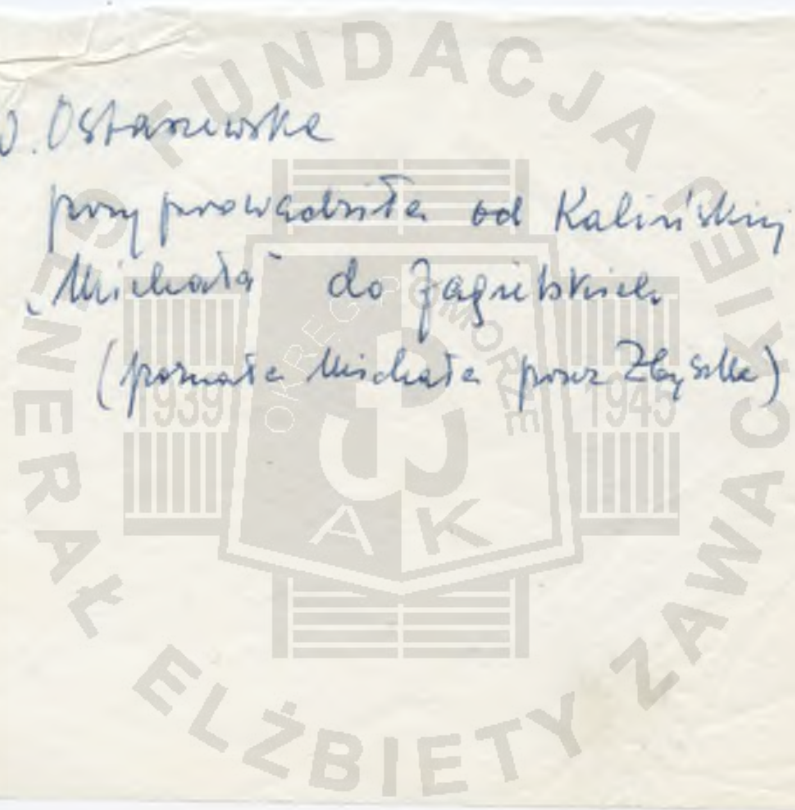 J. Ostaszewska
przyprowadziła od Kalińskiej
„Michała” do Zagrebskich
(poznała Michała przez Zbyszka)
FUNDACJA
GENERAŁ ELŻBIETY ZAWACKIEJ
OKRĘG POMORZE
1939 1945
AK